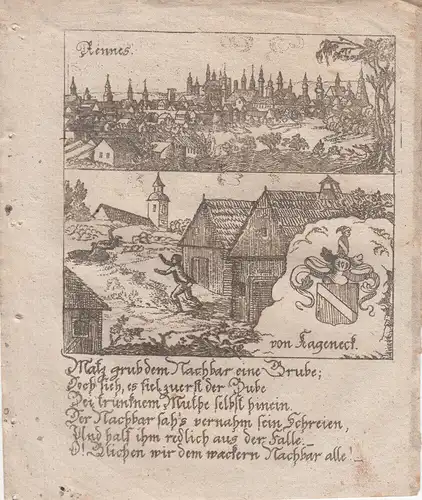 Rennes.
von Kageneck.
Matz grub dem Nachbar eine Grube;
Doch sieh, es fiel zuerst der Bube
Bei trunknem Muthe selbst hinein.
Der Nachbar sah's vernahm sein Schreien,
Und half ihm redlich aus der Falle. –
O! Glichen wir dem wackern Nachbar alle!